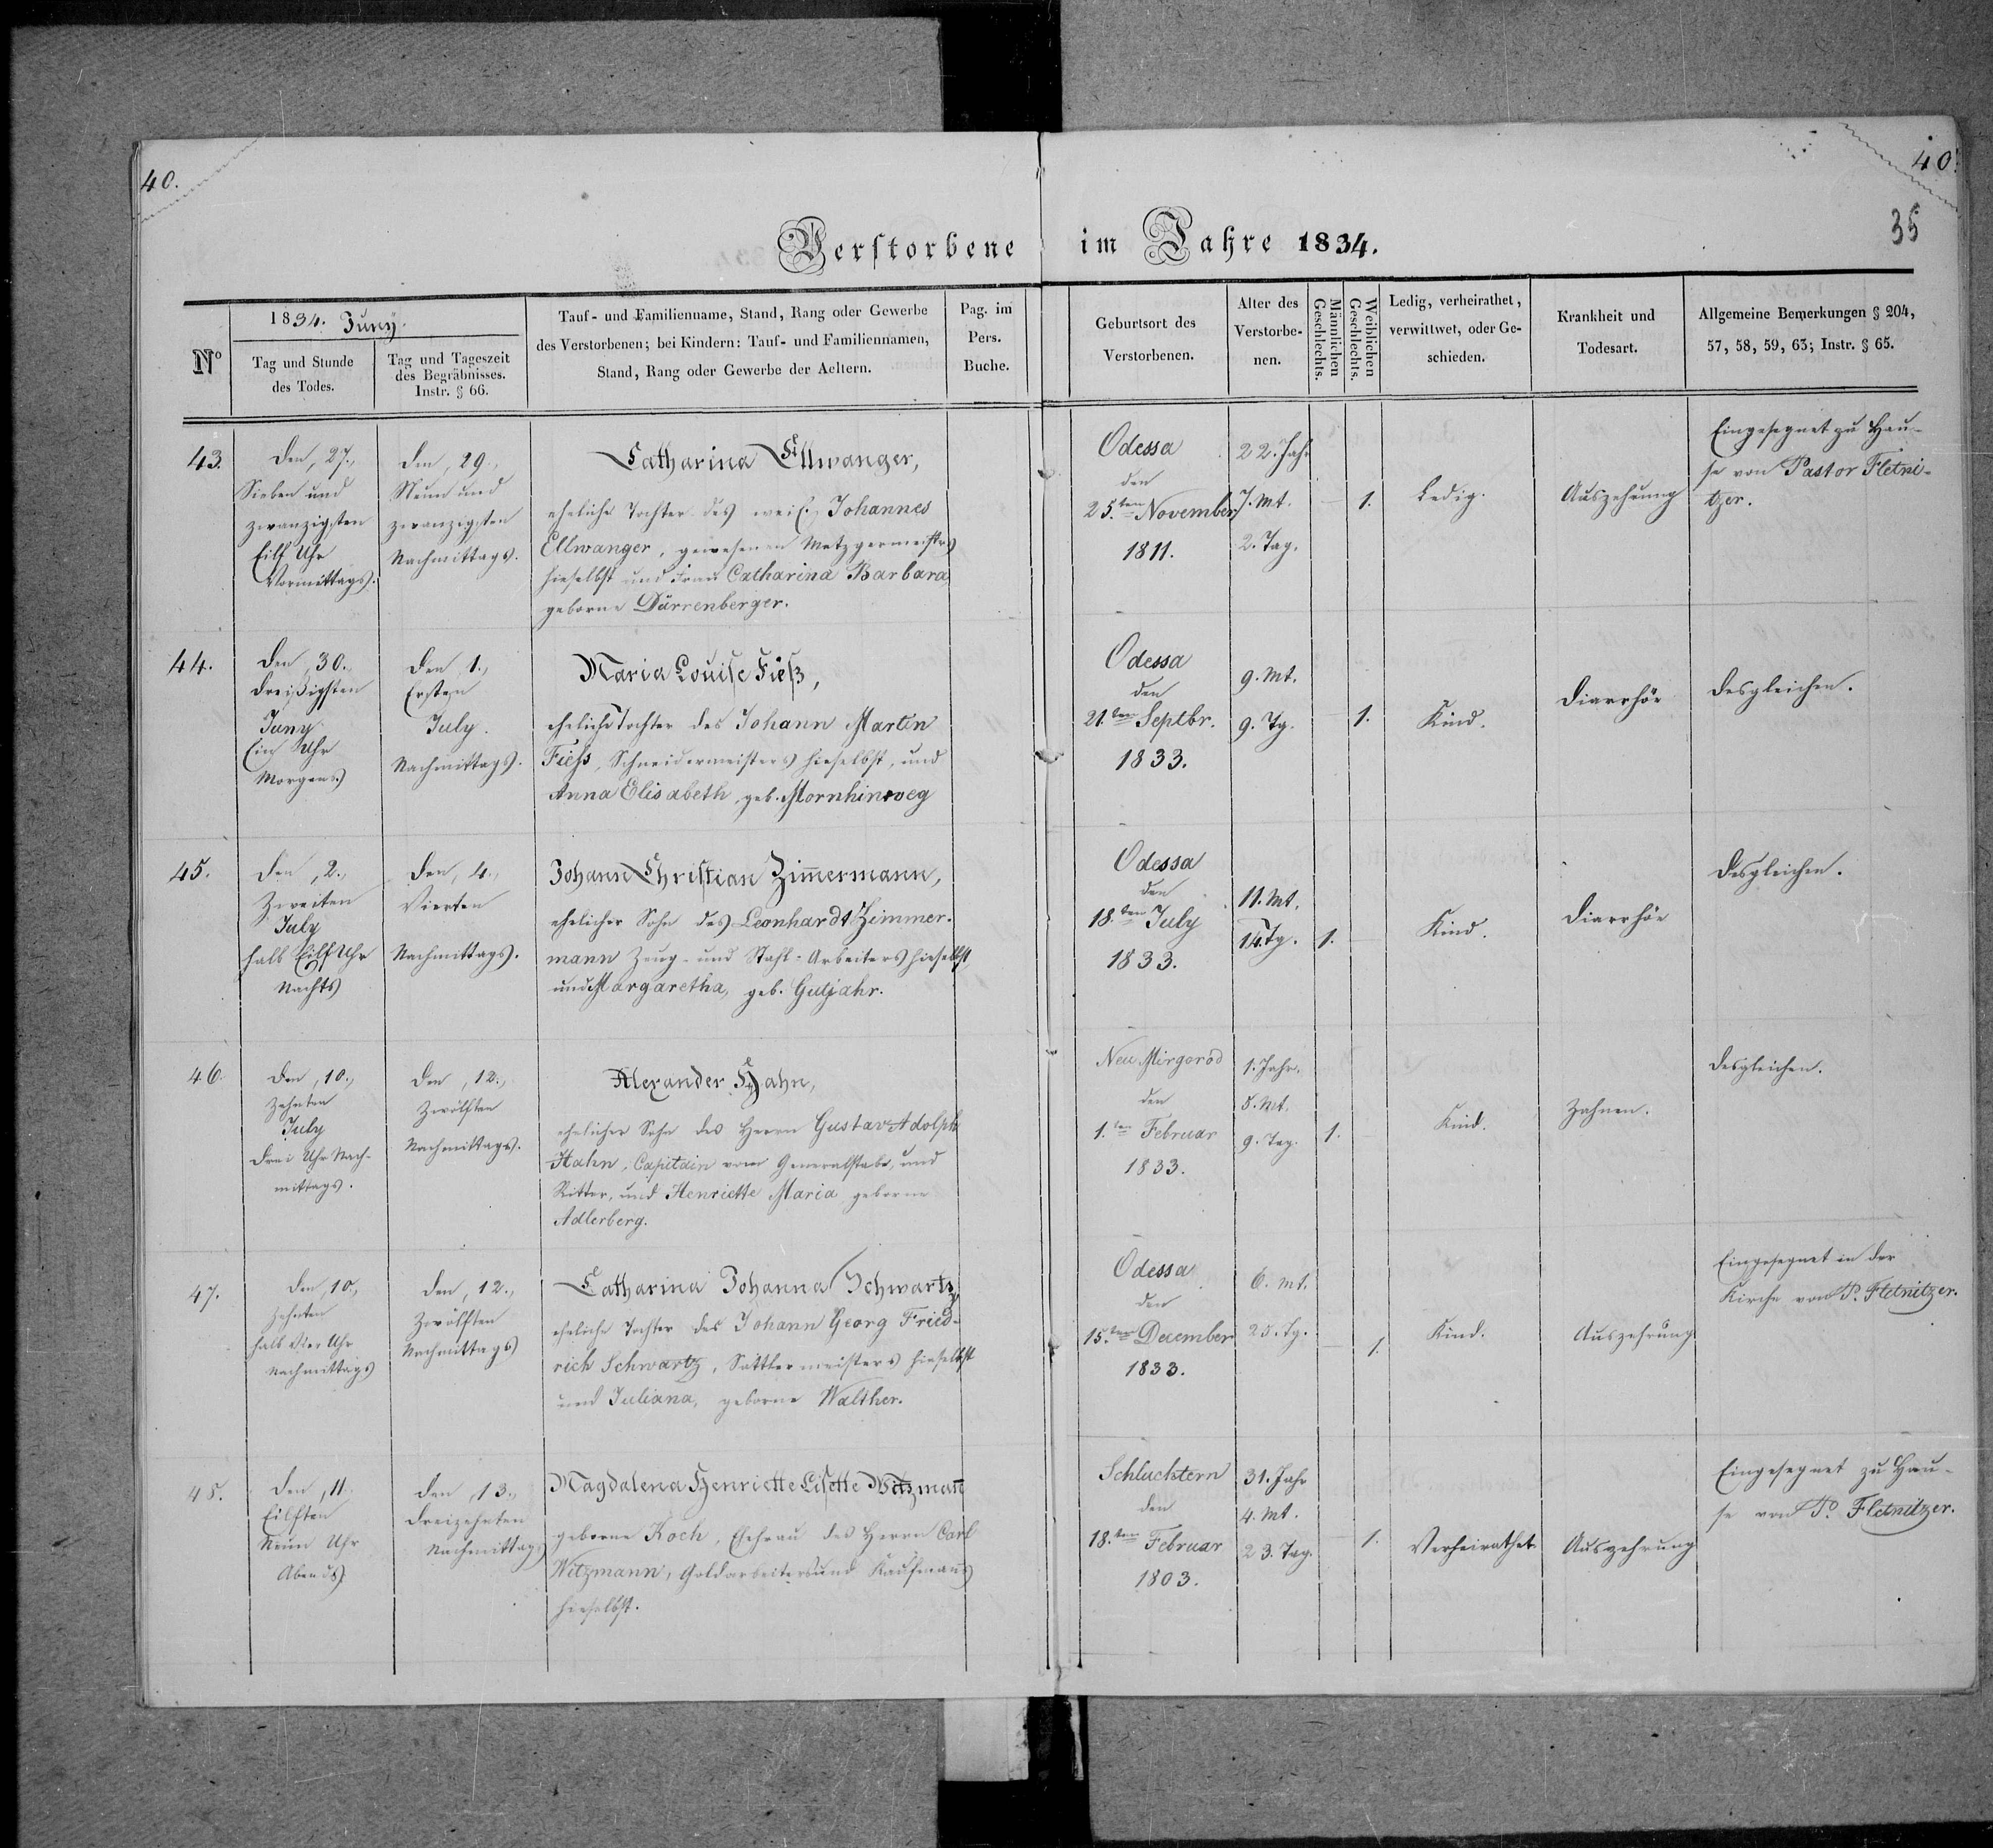 40.
40.
35
Verstorbene im Jahre 1834.
No
1834. Juny.
Tag und Stunde
des Todes.
Tag und Tageszeit
des Begräbnisses.
Instr. § 66.
Tauf- und Familienname, Stand, Rang oder Gewerbe
des Verstorbenen; bei Kindern: Tauf- und Familiennamen,
Stand, Rang oder Gewerbe der Aeltern.
Pag. im
Pers.
Buche.
Geburtsort des
Verstorbenen.
Alter des
Verstorbe-
nen.
Männlichen
Geschlechts.
Weiblichen
Geschlechts.
Ledig, verheirathet,
verwittwet, oder Ge-
schieden.
Krankheit und
Todesart.
Allgemeine Bemerkungen § 204,
57, 58, 59, 63; Instr. § 65.
43.
Den, 27.,
Sieben und
zwanzigsten
Eilf Uhr
Vormittags.
Den, 29.,
Neun und
zwanzigsten
Nachmittags.
Catharina Ellwanger,
eheliche Tochter des weil. Johannes
Ellwanger, gewesenen Metzgermeisters
hieselbst und Frau Catharina Barbara,
geborne Dürrenberger.
Odessa
den
25.ten November
1811.
22. Jahr
7. Mt.
2. Tag.
1.
Ledig.
Auszehrung
Eingesegnet zu Hau-
se von Pastor Fletni-
tzer.
44.
Den, 30.,
Dreißigsten
Juny
Ein Uhr
Morgens
Den, 1.,
Ersten
July.
Nachmittags.
Maria Louise Fieß,
eheliche Tochter des Johann Martin
Fiess, Schneidermeisters hieselbst, und
Anna Elisabeth, geb. Mornhinweg
Odessa
den
21.ten Septbr.
1833.
9. Mt.
9. Tg.
1.
Kind.
Diarrhöe
desgleichen.
45.
Den, 2.,
Zweiten
July
halb Eilf Uhr
Nachts
Den, 4.,
Vierten
Nachmittags.
Johann Christian Zimmermann,
ehelicher Sohn des Leonhardt Zimmer-
mann Zeug- und Stahl-Arbeiters hieselbst,
und Margaretha, geb. Gutjahr.
Odessa
den
18.ten July
1833.
11. Mt.
14. Tg.
1.
Kind.
Diarrhöe
desgleichen.
46.
Den, 10.,
Zehnten
July
Drei Uhr Nach-
mittags.
Den, 12.,
Zwölften
Nachmittags.
Alexander Hahn,
ehelicher Sohn des Herrn Gustav Adolph
Hahn, Capitain vom Generalstabe, und
Ritter, und Henriette Maria geborne
Adlerberg.
Neu Mirgorod
den
1.ten Februar
1833.
1. Jahr.
5. Mt.
9. Tag.
1.
Kind.
Zahnen.
desgleichen.
47.
Den 10.,
Zehnten
halb Vier Uhr
Nachmittags
Den, 12.,
Zwölften
Nachmittags
Catharina Johanna Schwartz,
eheliche Tochter des Johann Georg Fried-
rich Schwartz, Sattlermeisters hieselbst
und Juliana, geborne Walther.
Odessa
den
15.ten December
1833.
6. Mt.
25. Tg.
1.
Kind.
Auszehrung
Eingesegnet in der
Kirche von P. Fletnitzer.
48.
Den, 11.
Eilften
Neun Uhr
Abends
Den, 13.,
Dreizehnten
Nachmittags
Magdalena Henriette Lisette Witzmann
geborne Koch, Ehefrau des Herrn Carl
Witzmann, Goldarbeiters und Kaufmanns
hieselbst.
Schluchtern
den
18.ten Februar
1803.
31. Jahr
4. Mt.
23. Tag.
1.
Verheirathet
Auszehrung
Eingesegnet zu Hau-
se von P. Fletnitzer.